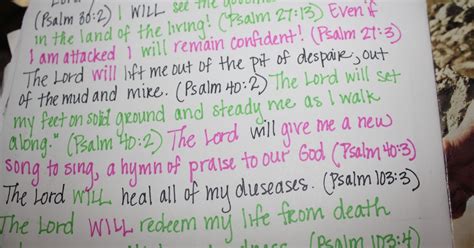 (Psalm 30:2) I WILL see the
in the land of the living! (Psalm 27:13) Even if
I am attacked I will remain confident! (Psalm 27:3)
The Lord will lift me out of the pit of despair, out
of the mud and mire. (Psalm 40:2) The Lord will set
my feet on solid ground and steady me as I walk
along." (Psalm 40:2) The Lord will give me a new
song to sing, a hymn of praise to our God (Psalm 40:3)
The Lord WILL heal all of my diseases. (Psalm 103:3)
The Lord WILL redeem my life from death
(Psalm 103:4)